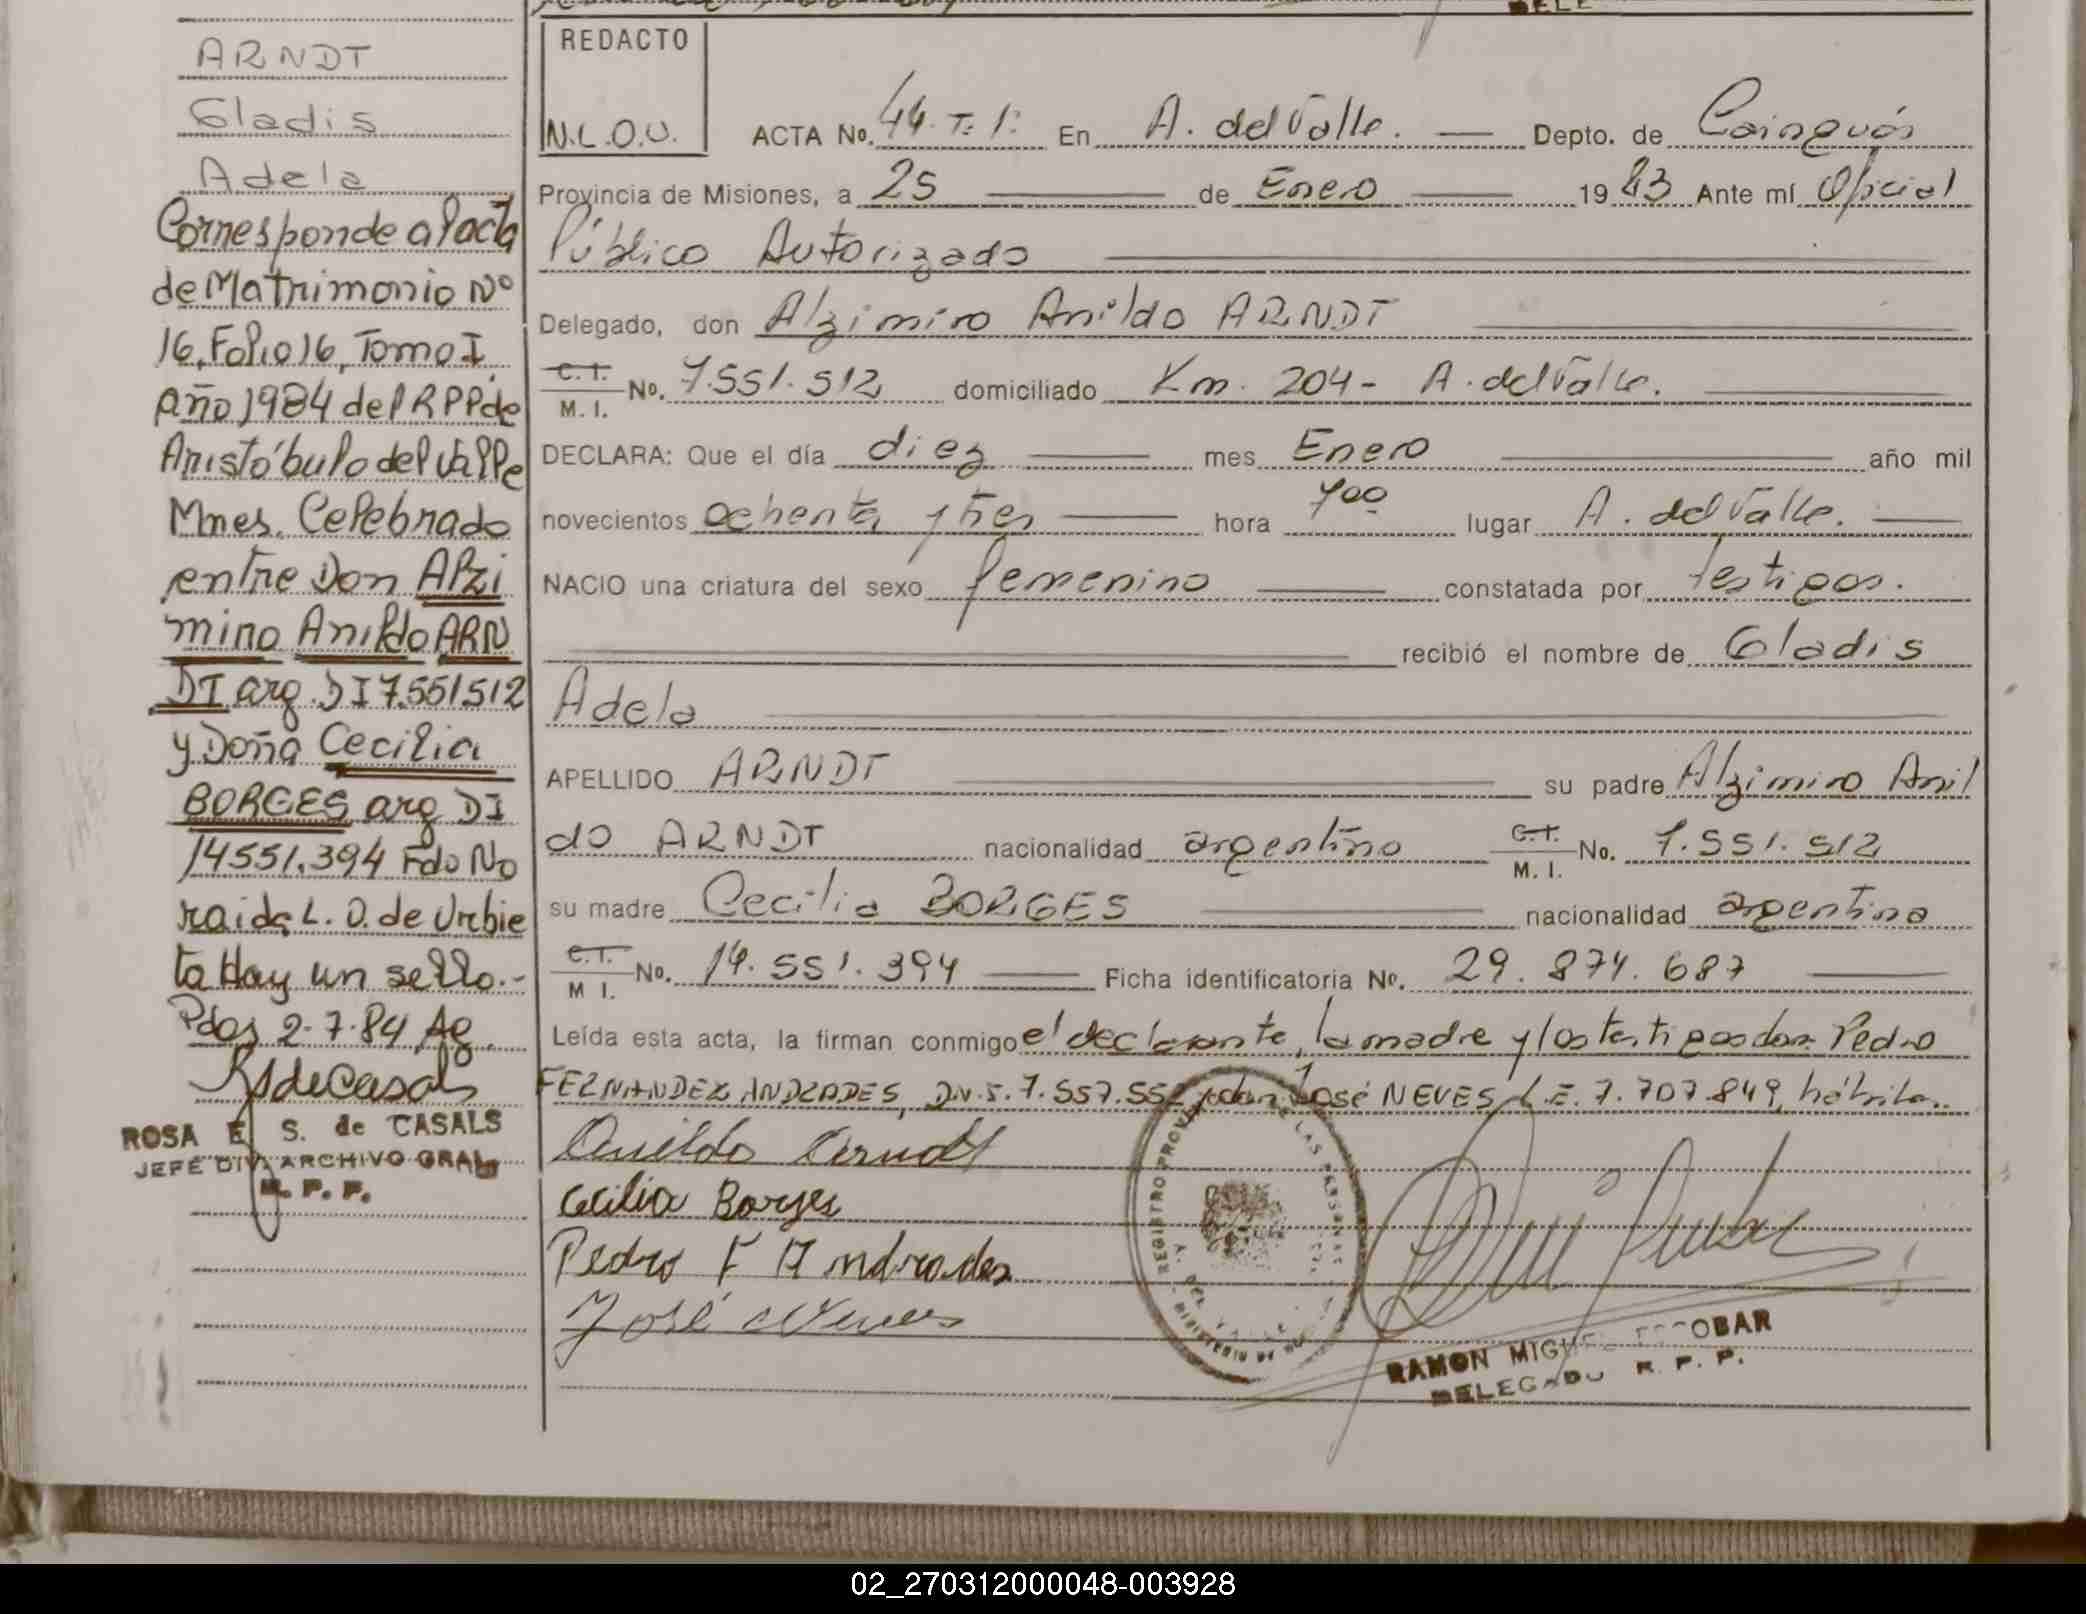 ARNDT
Gladis
Adela
Corresponde al acta
de Matrimonio Nº
16, Folio 16, Tomo I,
año 1984 del RPP de
Aristóbulo del Valle
Mnes. Celebrado
entre Don Alzi
miro Anildo ARN
DT arg. DI 7.551512
y Doña Cecilia
BORGES arg DI
14551.394 Fdo No
raida L. O. de Urbie
ta Hay un sello.-
Pdas 2-7-84 Ag.
RSdeCasals
ROSA E. S. de CASALS
JEFE DIV. ARCHIVO GRAL.
R. P. P.
REDACTO
N.L.O.U.
ACTA No. 44. T: 1: En A. del Valle. Depto. de Cainguás
Provincia de Misiones, a 25 de Enero 1983 Ante mí Oficial
Público Autorizado
Delegado, don Alzimiro Anildo ARNDT
C.I. M. I. No. 7.551.512 domiciliado Km. 204- A. del Valle.
DECLARA: Que el día diez mes Enero año mil
novecientos ochenta y tres hora 7oo lugar A. del Valle.
NACIO una criatura del sexo femenino constatada por testigos.
recibió el nombre de Gladis
Adela
APELLIDO ARNDT su padre Alzimiro Anil
do ARNDT nacionalidad argentino C.I. M. I. No. 7.551.512
su madre Cecilia BORGES nacionalidad argentina
C.I. M I. No. 14.551.394 Ficha identificatoria No. 29.874.687
Leída esta acta, la firman conmigo el declarante, la madre y los testigos don: Pedro
FERNANDEZ ANDRADES, D.N.I. 7.557.552 y don José NEVES L.E. 7.707.849, hábiles.
Anildo Arndt
Cecilia Borges
Pedro F Andrades
José Neves
REGISTRO PROV. DE LAS PERSONAS
RAMON MIGUEL ESCOBAR
DELEGADO R. P. P.
02_270312000048-003928